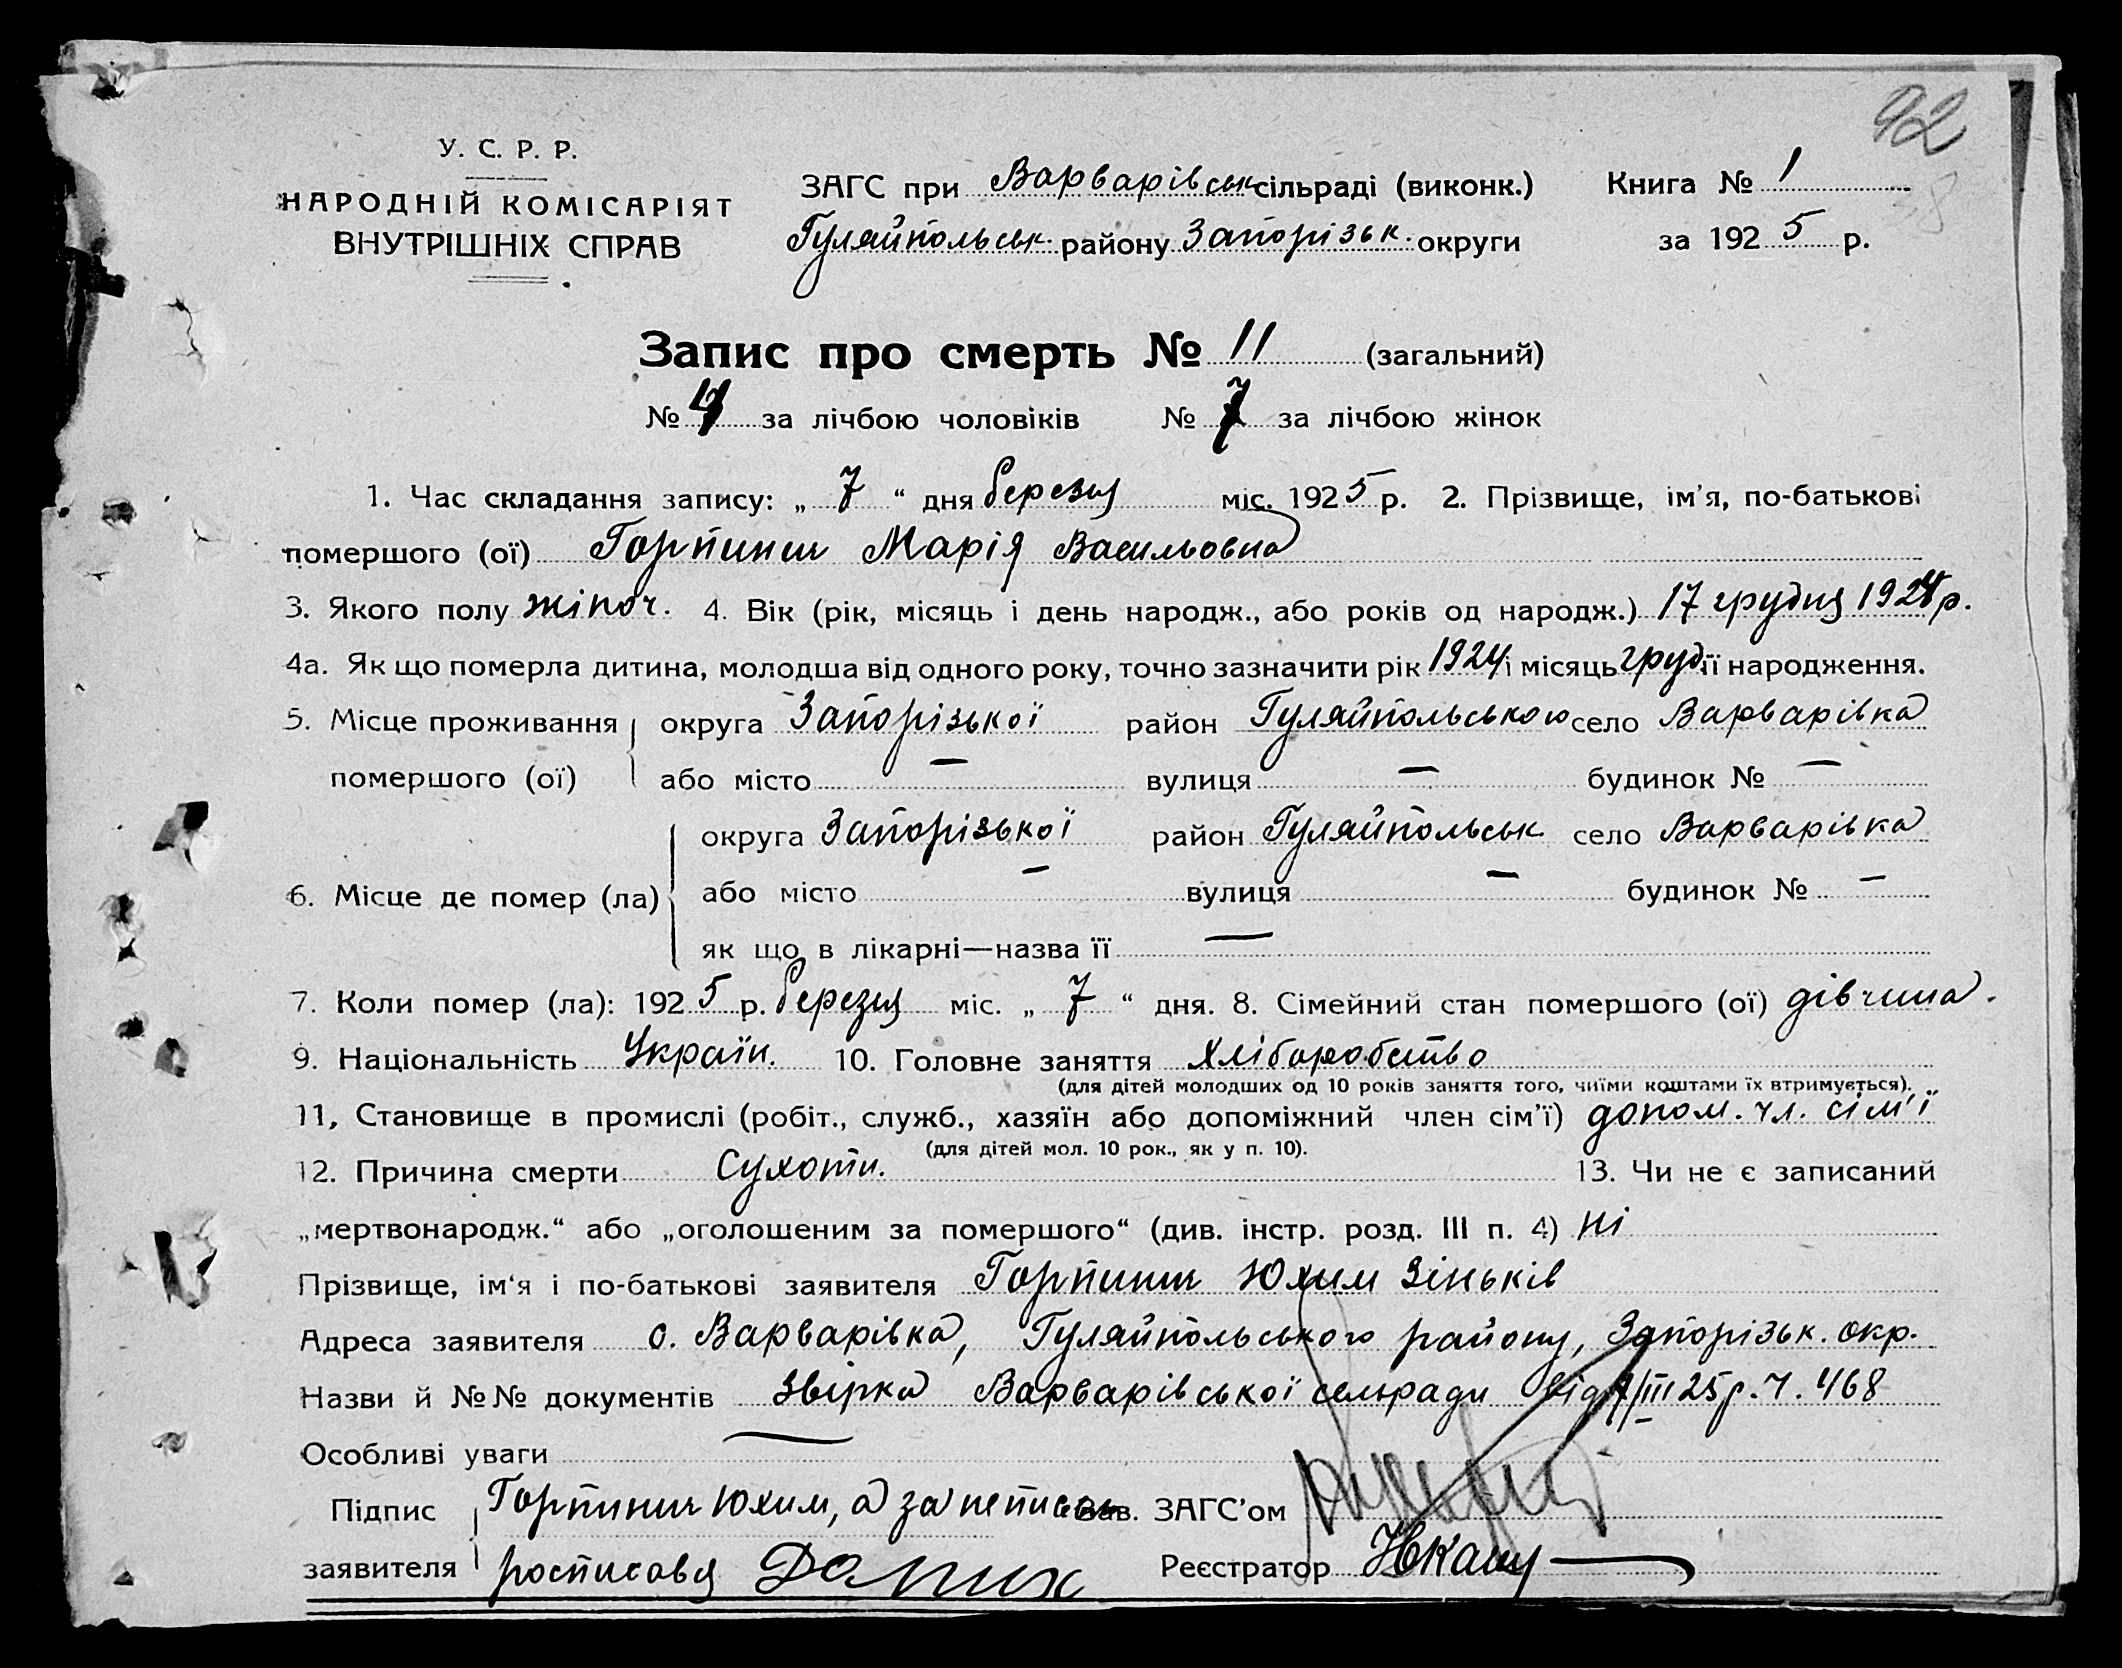 92
У. С. Р. Р.
НАРОДНІЙ КОМІСАРІЯТ
ВНУТРІШНІХ СПРАВ
ЗАГС при Варварівськ сільраді (виконк.)
Гуляйпольськ. району Запорізьк. округи
Книга № 1
за 1925 р.
Запис про смерть № 11 (загальний)
№ 4 за лічбою чоловіків № 7 за лічбою жінок
1. Час складання запису: „ 7 “ дня березня міс. 1925 р. 2. Прізвище, ім’я, по-батькові
помершого (ої) Горпинич Марія Васильовна
3. Якого полу жіноч. 4. Вік (рік, місяць і день народж., або років од народж.) 17 грудня 1924 р.
4а. Як що померла дитина, молодша від одного року, точно зазначити рік 1924 і місяць груд. її народження.
5. Місце проживання округа Запорізької район Гуляйпольського село Варварівка
помершого (ої) або місто — вулиця — будинок № —
округа Запорізької район Гуляйпольськ село Варварівка
6. Місце де помер (ла) або місто — вулиця — будинок № —
як що в лікарні—назва її —
7. Коли помер (ла): 1925 р. березня міс. „ 7 “ дня. 8. Сімейний стан помершого (ої) дівчина.
9. Національність Україн. 10. Головне заняття Хліборобство
(для дітей молодших од 10 років заняття того, чиїми коштами їх втримується).
11, Становище в промислі (робіт., служб., хазяїн або допоміжний член сім’ї) допом. чл. сім'ї
(для дітей мол. 10 рок., як у п. 10).
12. Причина смерти Сухоти. 13. Чи не є записаний
„мертвонародж.“ або „оголошеним за помершого“ (див. інстр. розд. III п. 4) ні
Прізвище, ім‘я і по-батькові заявителя Горпинич Юхим Зіньків
Адреса заявителя с. Варварівка, Гуляйпольського району, Запорізьк. окр.
Назви й №№ документів Звірка Варварівської сельради від 7/III 25 р. Ч. 468
Особливі уваги —
Підпис Горпинич Юхим, а за неписьм Зав. ЗАГС’ом
заявителя росписавя Реєстратор